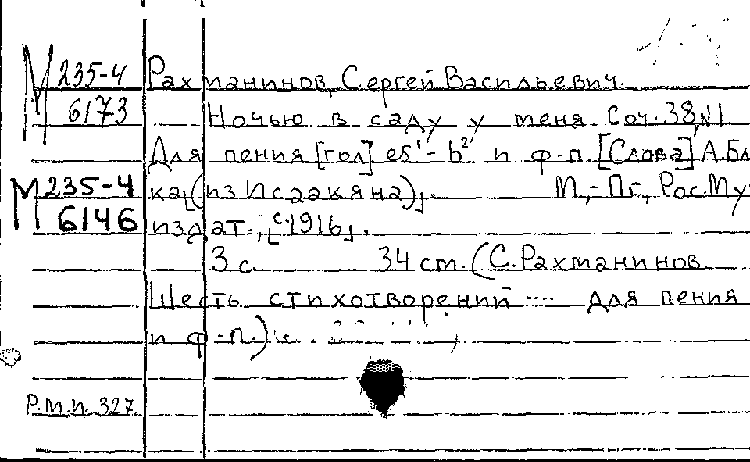 М 235-4 Рахманинов, Сергей Васильевич.
6173 Ночью в саду у меня. Соч. 38, №1
Для пения [гол] es¹-b²' и ф-п. [Слова] А. Бл
М 235-4 ка (из Исаакяна). М.,-Пг., Рос Му
6146 издат., [с. 1916].
3 с. 34 ст. (С. Рахманинов
Шесть стихотворений ... для пения
и ф-п.)
Р.м.и. 327